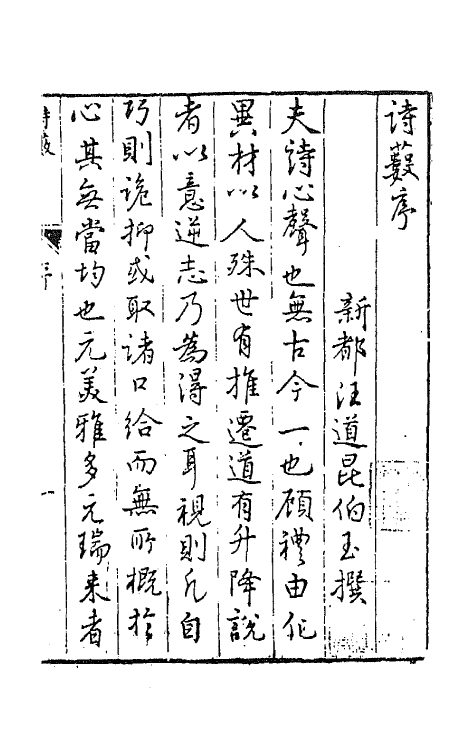 詩藪序
新都汪道昆伯玉撰
夫詩心聲也無古今一也顧禮由代
異材以人殊世有推遷道有升降說
者以意逆志乃為得之耳視則凡目
巧則詭抑或取諸口給而無所概於
心其無當均也元美雅多元瑞来者
詩藪
序
一